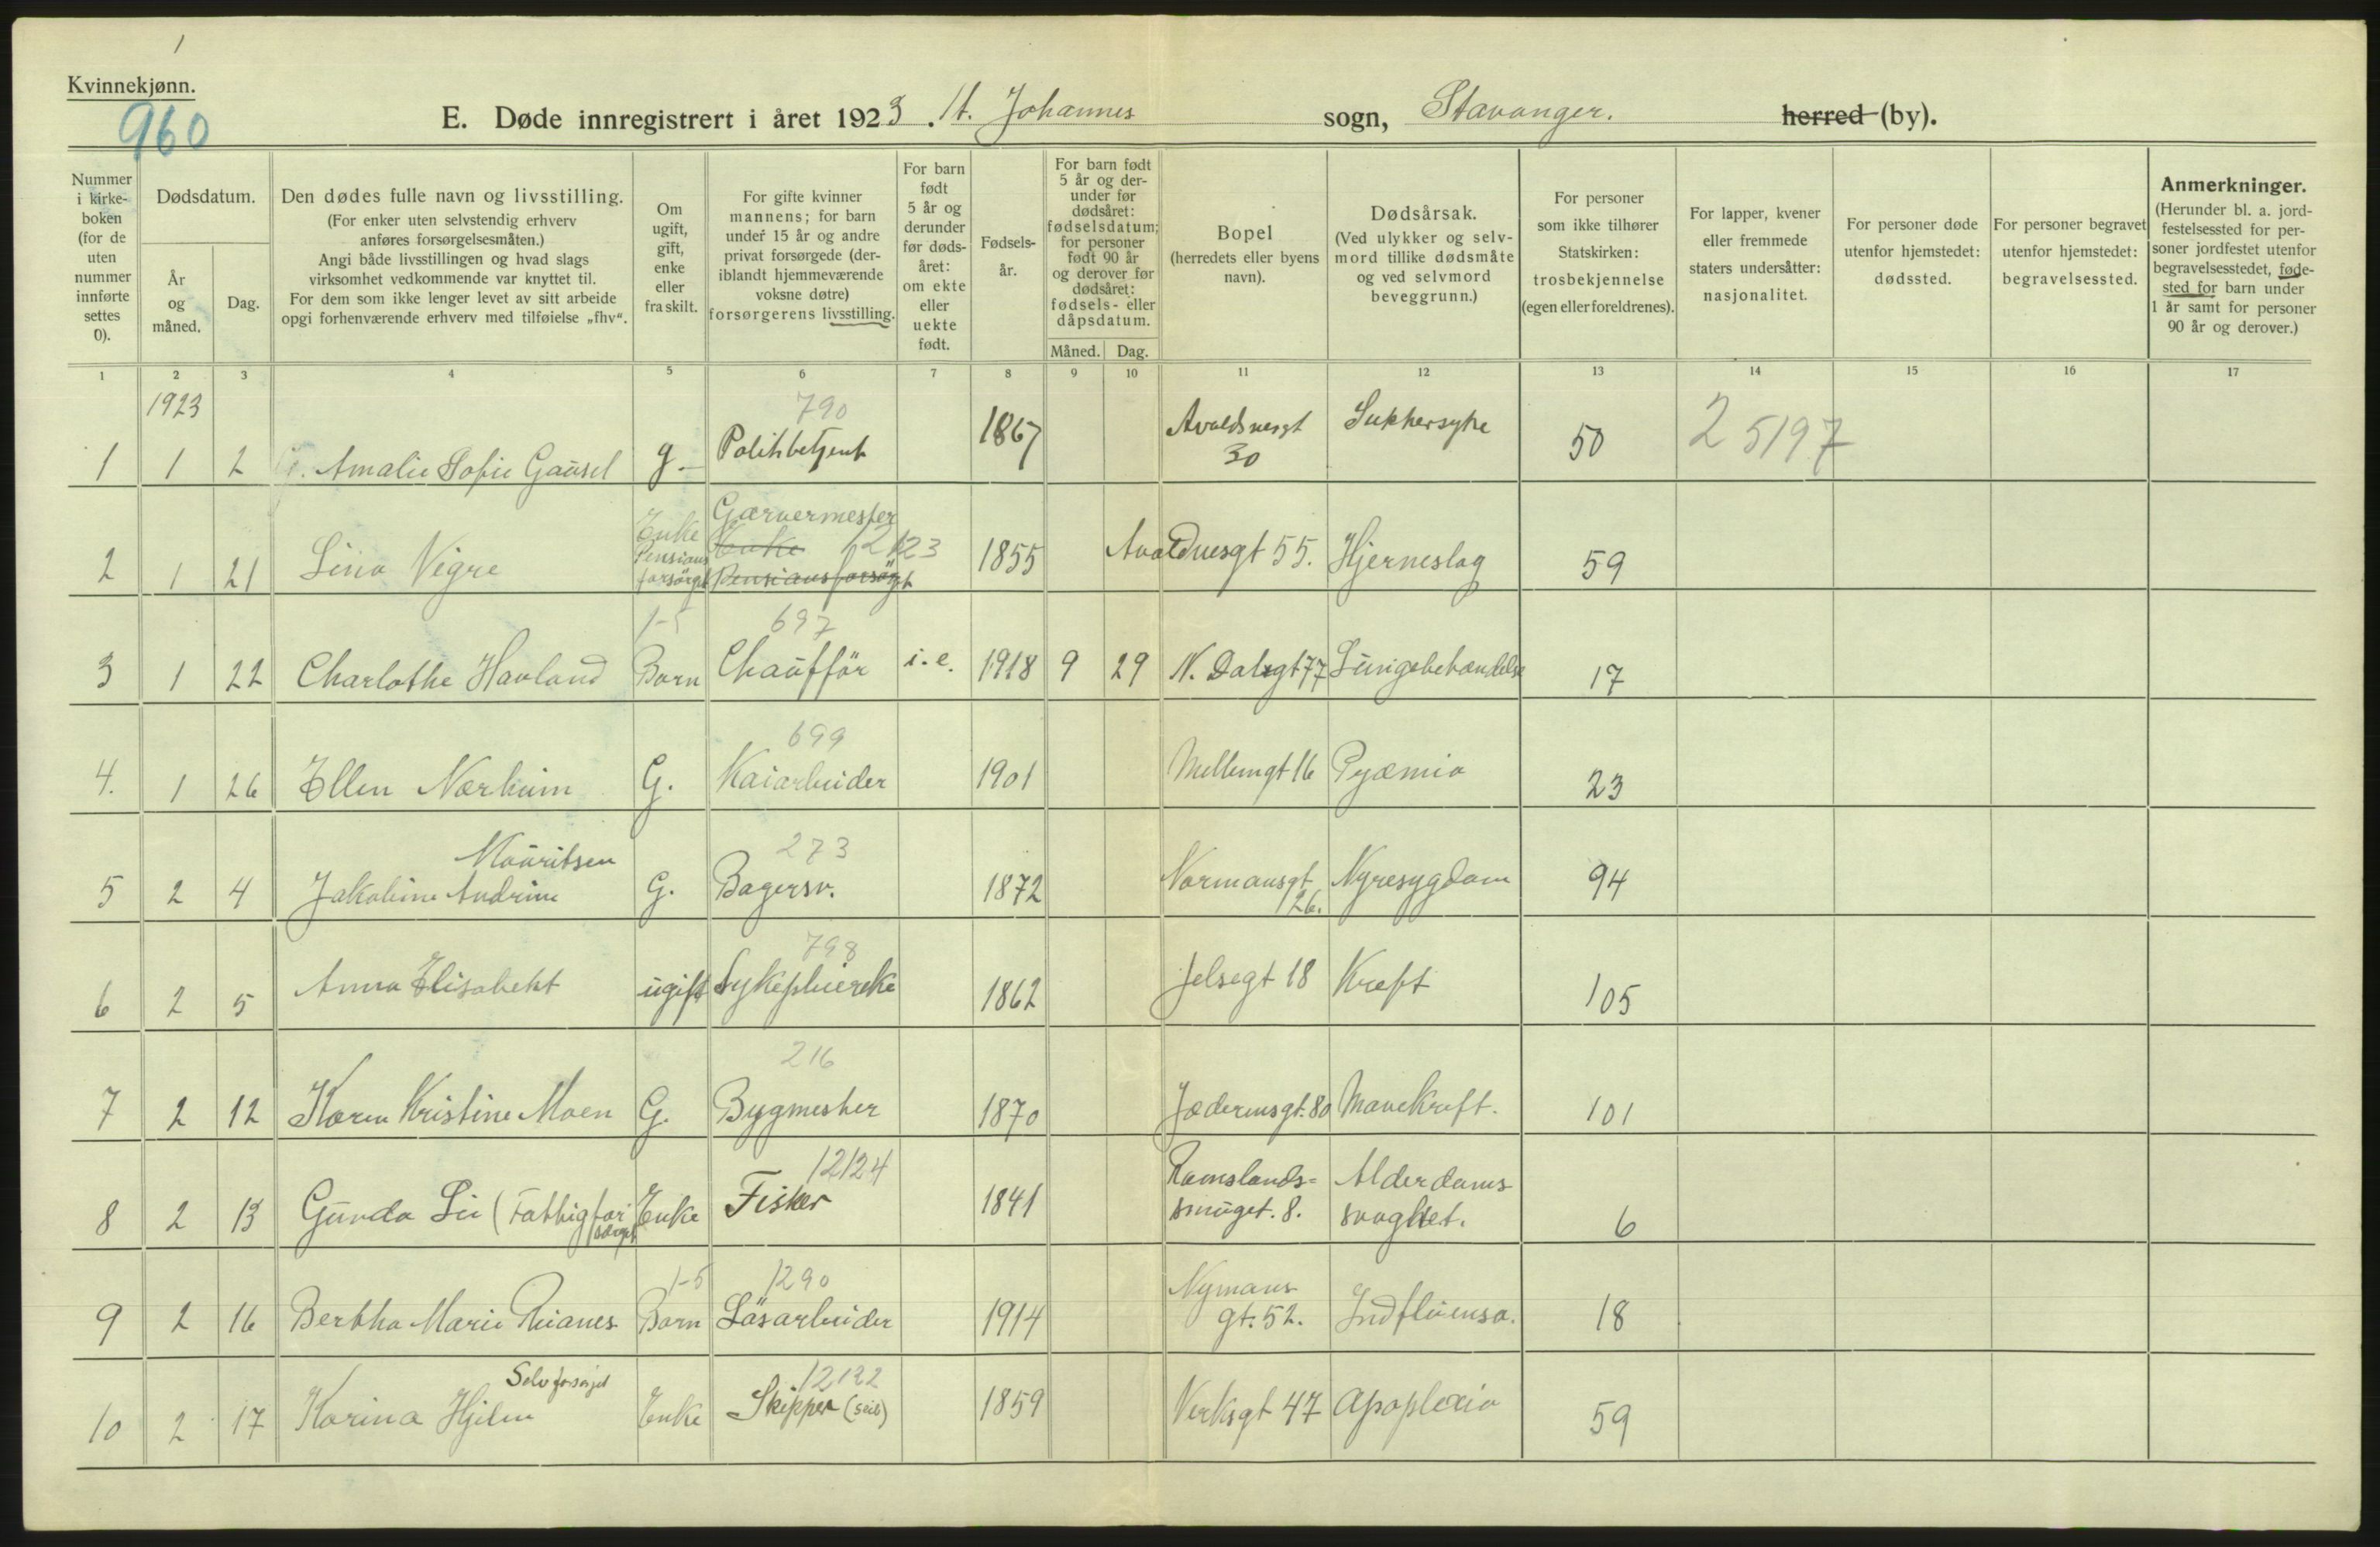 1
Kvinnekjønn.
960
E. Døde innregistrert i året 1923. St. Johannes sogn, Stavanger. herred (by).
Nummer i kirke-boken (for de uten nummer innførte settes 0).
Dødsdatum.
År og måned.
Dag.
Den dødes fulle navn og livsstilling.
(For enker uten selvstendig erhverv
anføres forsørgelsesmåten.)
Angi både livsstillingen og hvad slags
virksomhet vedkommende var knyttet til.
For dem som ikke lenger levet av sitt arbeide
opgi forhenværende erhverv med tilføielse „fhv“.
Om ugift, gift, enke eller fraskilt.
For gifte kvinner
mannens; for barn
under 15 år og andre
privat forsørgede (der-
iblandt hjemmeværende
voksne døtre)
forsørgerens livsstilling.
For barn født 5 år og derunder før døds-året: om ekte eller uekte født.
Fødsels-år.
For barn født 5 år og der-under før dødsåret: fødselsdatum; for personer født 90 år og derover før dødsåret: fødsels- eller dåpsdatum.
Måned. Dag.
Bopel
(herredets eller byens
navn).
Dødsårsak.
(Ved ulykker og selv-
mord tillike dødsmåte
og ved selvmord
beveggrunn.)
For personer
som ikke tilhører
Statskirken:
trosbekjennelse
(egen eller foreldrenes).
For lapper, kvener
eller fremmede
staters undersåtter:
nasjonalitet.
For personer døde
utenfor hjemstedet:
dødssted.
For personer begravet
utenfor hjemstedet:
begravelsessted.
Anmerkninger.
(Herunder bl. a. jord-
festelsessted for per-
soner jordfestet utenfor
begravelsesstedet, føde-
sted for barn under
1 år samt for personer
90 år og derover.)
1 2 3 4 5 6 7 8 9 10 11 12 13 14 15 16 17
1923
790
1 1 2 G. Amalie Sofie Gausel g. Politibetjent 1867 Avaldsnesgt 30 Sukkersyke 50 25197
Garvermester
2 1 21 Lina Vigre Enke Pensions forsørget Enke 12123 Pensionsforsørget 1855 Avaldnesgt 55. Hjerneslag 59
1-5 697
3 1 22 Charlothe Havland Barn Chaufför i.e. 1918 9 29 N. Dalsgt 77 Lungebetændelse 17
699
4. 1 26 Ellen Nærheim G. Kaiarbeider 1901 Mellemgt 16 Pyæmia 23
Mauritsen 273
5 2 4 Jakobine Andrine G. Bagersv. 1872 Normansgt 26. Nyresygdom 94
798
6 2 5 Anna Elisabeht ugift Sykepleierske 1862 Jelsegt 18 Kreft 105
216
7 2 12 Karen Kristine Moen G. Bygmester 1870 Jæderensgt. 80 Mavekreft. 101
12124
8 2 13 Gunda Lie (Fattigforsørget Enke Fisker 1841 Ramslands=smuget. 8. Alderdoms svaghet. 6
1-5 1290
9 2 16 Bertha Marie Rianes Barn Løsarbeider 1914 Nymansgt. 52. Indfluensa. 18
Selvforsørget 12122
10 2 17 Karina Hjelm Enke Skipper (seil) 1859 Verksgt 47 Apoplexia 59